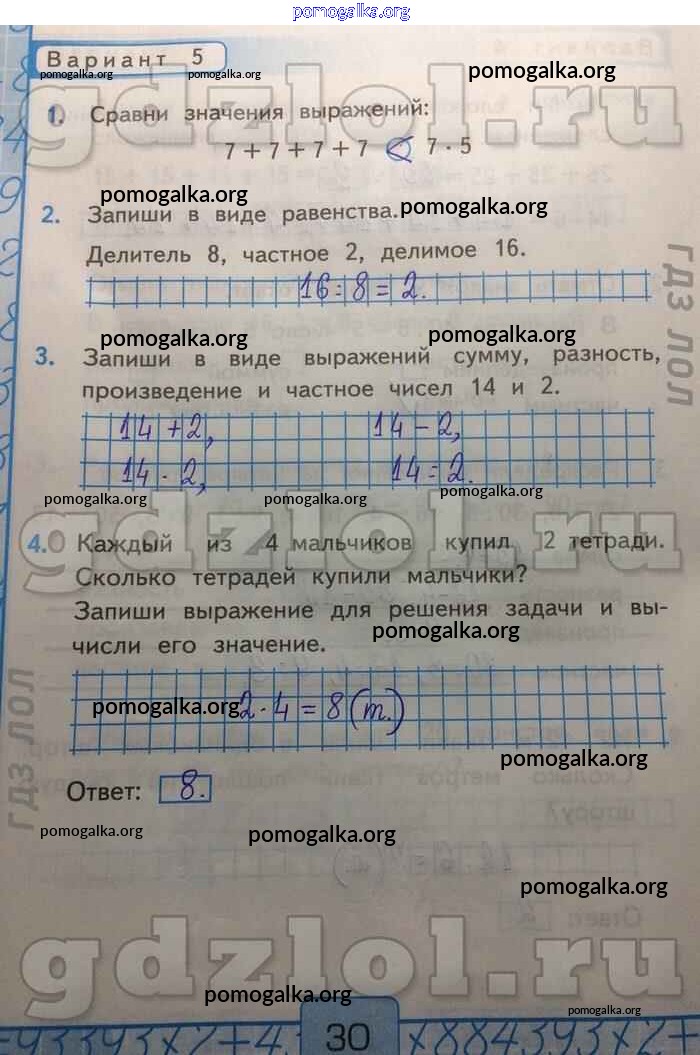 pomogalka.org
Вариант 5
pomogalka.org pomogalka.org pomogalka.org
gdzlol.ru
1. Сравни значения выражений:
7 + 7 + 7 + 7 < 7 · 5
pomogalka.org pomogalka.org
2. Запиши в виде равенства.
Делитель 8, частное 2, делимое 16.
16 : 8 = 2.
гдз лол
pomogalka.org pomogalka.org
3. Запиши в виде выражений сумму, разность,
произведение и частное чисел 14 и 2.
14 + 2, 14 - 2,
14 · 2, 14 : 2.
pomogalka.org pomogalka.org pomogalka.org
gdzlol.ru
4. Каждый из 4 мальчиков купил 2 тетради.
Сколько тетрадей купили мальчики?
Запиши выражение для решения задачи и вы-
числи его значение.
pomogalka.org
гдз лол
pomogalka.org
2 · 4 = 8 (т.)
pomogalka.org
Ответ: 8.
pomogalka.org pomogalka.org
pomogalka.org
gdzlol.ru
pomogalka.org pomogalka.org
30